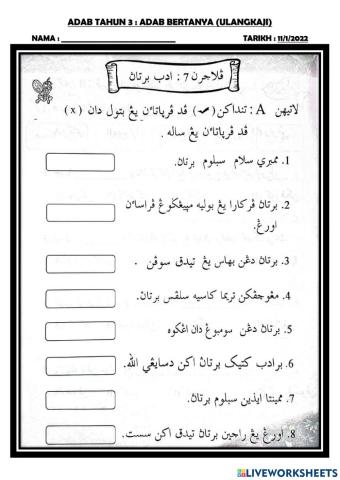 ADAB TAHUN 3 : ADAB BERTANYA (ULANGKAJI)
NAMA : ______________________ TARIKH : 11/1/2022
ڤلاجرن 7 : ادب برتاڽ
لاتيهن A : تنداكن (✓) ڤد ڤرڽاتاءن يڠ بتول دان (x)
ڤد ڤرڽاتاءن يڠ ساله .
1. ممبري سلام سبلوم برتاڽ.
2. برتاڽ ڤركارا يڠ بوليه مڽيڠݢوڠ ڤراساءن
اورڠ.
3. برتاڽ دڠن بهاس يڠ تيدق سوڤن .
4. مڠوچڤكن تريما كاسيه سلڤس برتاڽ.
5. برتاڽ دڠن سومبوڠ دان اڠكوه
6. برادب كتيك برتاڽ اكن دسايڠي الله.
7. ممينتا ايذين سبلوم برتاڽ.
8. اورڠ يڠ راجين برتاڽ تيدق اكن سست.
LIVEWORKSHEETS